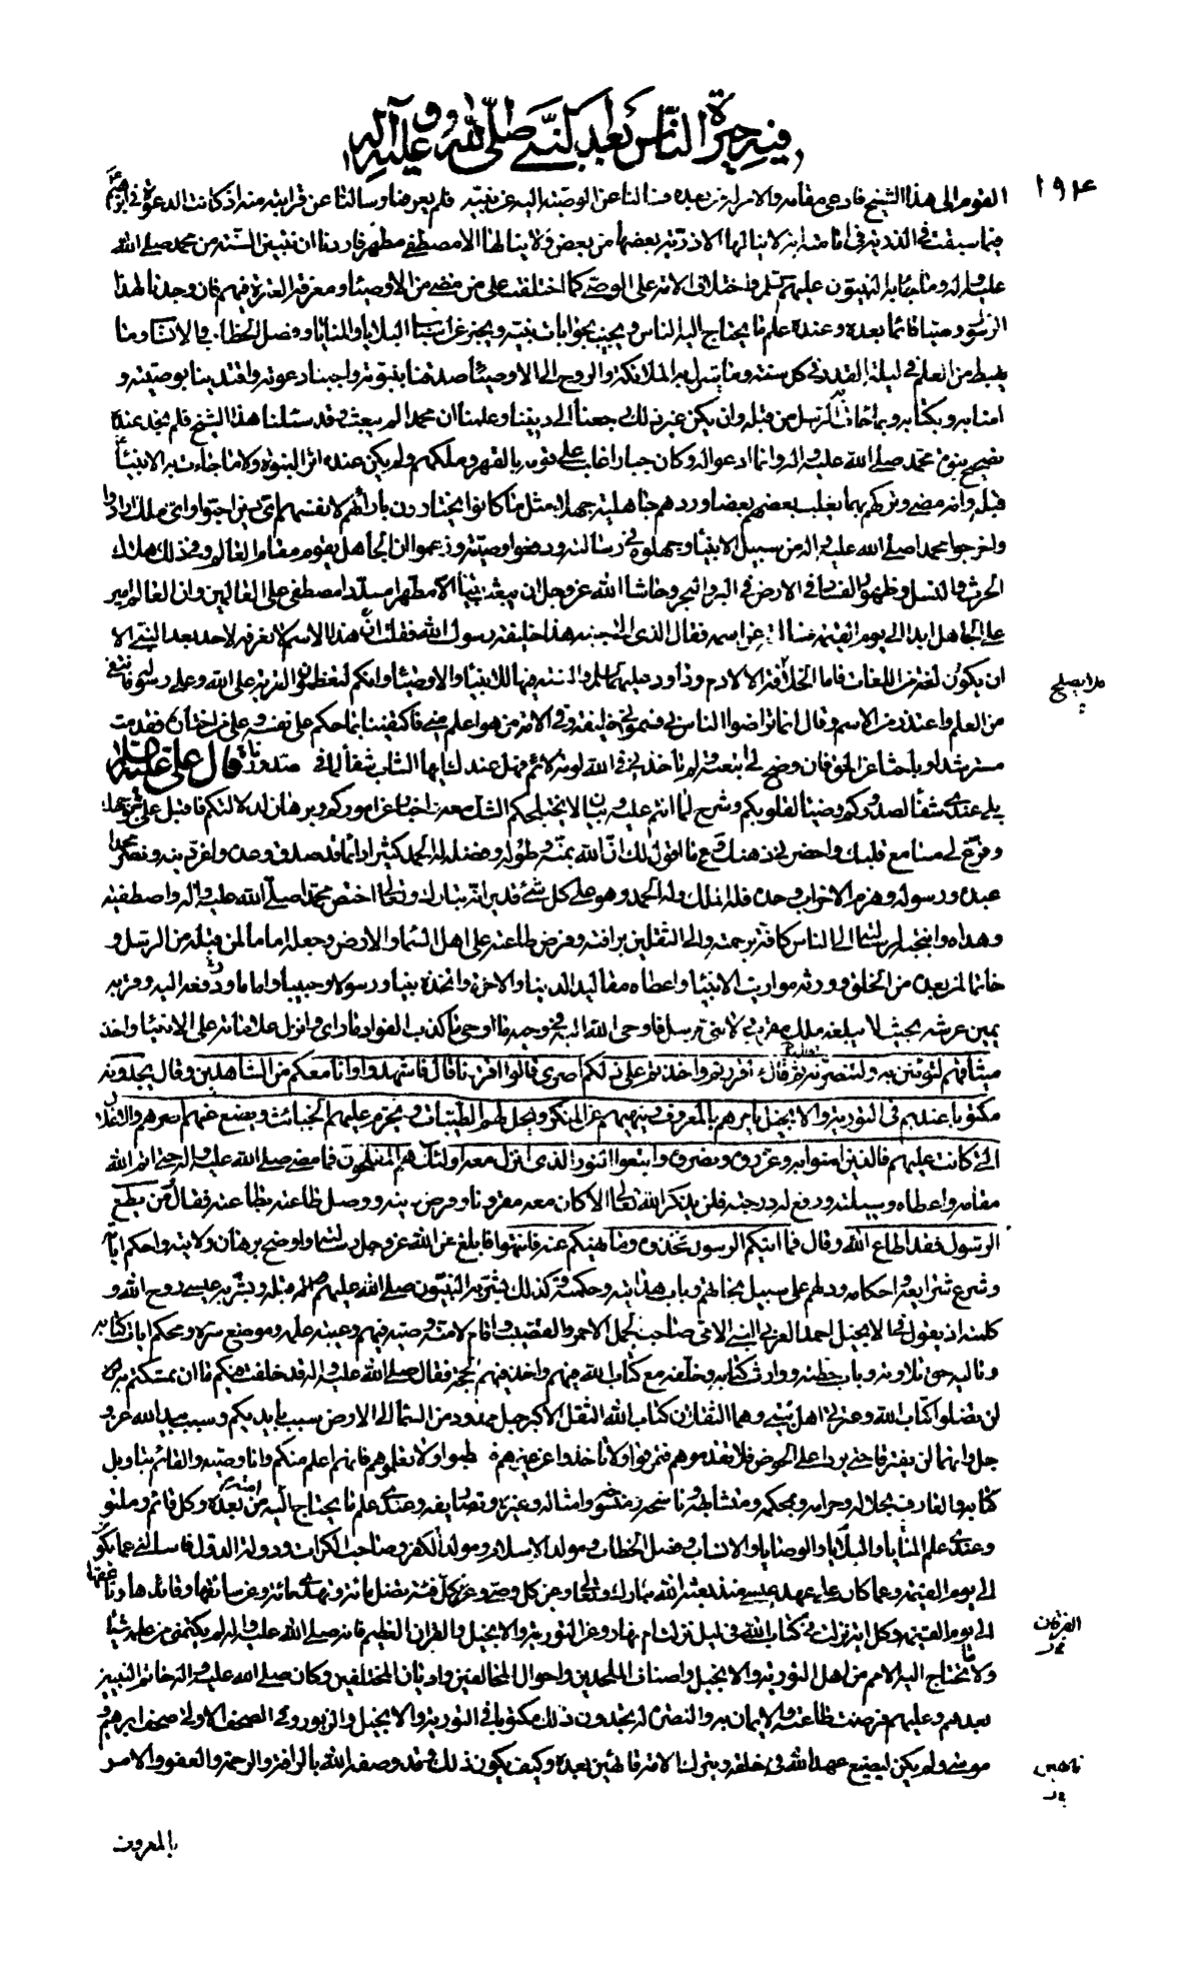 فيه حيرة الناس بعد النبي صلى الله عليه وآله
١٩٤
القوم الى هذا الشيخ فادعى مقامه والامر له من بعده فسألنا عن الوصية اليه عن نبيه فلم يعرفها وسألنا عن قرابته منه اذ كانت الدعوة في ابرهيم
فيما سبقت في الذرية في امامته انه لا ينالها الا ذرية بعضها من بعض ولا ينالها الا مصطفى مطهر فاردنا ان نتبين السنة من محمد صلى الله
عليه واله وما جاء به النبيون عليهم واختلاف الامة على الوصي كما اختلفت على من مضى من الاوصياء ومعرفة العترة فيهم فان وجدنا لهذا
الرسول وصيا قائما بعده وعنده علم ما يحتاج اليه الناس ويجيب بجوابات بينة ويخبر عن اسباب البلايا والمنايا وفصل الخطاب والانساب وما
يهبط من العلم في ليلة القدر في كل سنة وما ينزل به الملائكة والروح الى الاوصياء صدقنا بنبوته واجبنا دعوته واقتدينا بوصيته و
امنا به وبكتابه وبما جاءت به الرسل من قبله وان يكن غير ذلك رجعنا الى ديننا وعلمنا ان محمدا لم يبعث وقد سئلنا هذا الشيخ فلم نجد عنده
تصحيح نبوة محمد صلى الله عليه واله وانما ادعوا له وكان جبارا غلب على قومه بالقهر وملكهم ولم يكن عنده اثر النبوة ولا ما جاءت به الانبياء
قبله وانه مضى وتركهم بهما يغلب بعضهم بعضا وردهم جاهلية جهلاء مثل ما كانوا يختارون بارائهم لانفسهم اي دين احبوا واي ملك ارادوا
واخرجوا محمدا صلى الله عليه واله من سبيل الانبياء وجهلوه في رسالته ودفعوا وصيته وزعموا ان الجاهل يقوم مقام العالم وفي ذلك هلاك
الحرث والنسل وظهور الفساد في الارض في البر والبحر وحاشا الله عز وجل ان يبعث نبيا الا مطهرا مسددا مصطفى على العالمين وان العالم امير
على الجاهل ابدا الى يوم القيمة فسألته عن اسمه فقال الذي الى جنبه هذا خليفة رسول الله فقلت ان هذا الاسم لا نعرفه لاحد بعد النبي الا
ان يكون لغة من اللغات فاما الخلافة فلا تصلح الا لادم وداود عليهما السلام والسنة فيها للانبياء والاوصياء وانكم لتعظمون الفرية على الله وعلى رسوله فانتفى
من العلم واعتذر من الاسم وقال انما تراضوا الناس بي فسموني خليفة وفي الامة من هو اعلم مني فاكتفينا بما حكم على نفسه وعلى من اختاره فقدمت
مسترشدا وباحثا عن الحق فان وضح لي اتبعته ولم تأخذني في الله لومة لائم فهل عندك ايها الشاب شفاء لما في صدورنا قال علي عليه السلام
بلى عندي شفاء لصدوركم وضياء لقلوبكم وشرح لما انتم عليه وبيان لا يختلجكم الشك معه واخبار عن اموركم وبرهان لدلالتكم فاقبل علي بوجهك
وفرغ لي مسامع قلبك واحضرني ذهنك وع ما اقول لك ان الله بمنه وطوله وفضله له الحمد كثيرا دائما قد صدق وعده واعز دينه ونصر محمدا
عبده ورسوله وهزم الاحزاب وحده فله الملك وله الحمد وهو على كل شئ قدير انه تبارك وتعالى اختص محمدا صلى الله عليه واله واصطفيه
وهداه وانتجبه لرسالته الى الناس كافة برحمته والى الثقلين برأفته وفرض طاعته على اهل السماء والارض وجعله اماما لمن قبله من الرسل و
خاتما لمن بعده من الخلق وورثه مواريث الانبياء واعطاه مقاليد الدنيا والاخرة واتخذه نبيا ورسولا وحبيبا واماما ورفعه اليه وقربه
يمين عرشه بحيث لا يبلغه ملك مقرب ولا نبي مرسل فاوحى الله اليه في وحيه ما اوحى ما كذب الفؤاد ما راى وانزل علاماته على الانبياء واخذ
ميثاقهم لتؤمنن به ولتنصرنه ثم قال ءاقررتم واخذتم على ذلكم اصري قالوا اقررنا قال فاشهدوا وانا معكم من الشاهدين وقال يجدونه
مكتوبا عندهم في التورية والانجيل يأمرهم بالمعروف وينهيهم عن المنكر ويحل لهم الطيبات ويحرم عليهم الخبائث ويضع عنهم اصرهم والاغلال
التي كانت عليهم فالذين امنوا به وعزروه ونصروه واتبعوا النور الذي انزل معه اولئك هم المفلحون فما مضى صلى الله عليه واله حتى اتم الله
مقامه واعطاه وسيلته ورفع له درجته فلن يذكر الله تعالى الا كان معه مقرونا وفرض دينه ووصل طاعته بطاعته فقال من يطع
الرسول فقد اطاع الله وقال فما اتيكم الرسول فخذوه وما نهيكم عنه فانتهوا فابلغ عن الله عز وجل رسالته واوضح برهان ولايته واحكم اياته
وشرع شرايعه واحكامه ودلهم على سبيل نجاتهم وباب هدايته وحكمته وكذلك بشر به النبيون صلى الله عليهم قبله وبشر به عيسى روح الله و
كلمته اذ يقول في الانجيل احمد العربي النبي الامي صاحب الجمل الاحمر والقضيب واقام لامته وصيه فيهم وعيبة علمه وموضع سره ومحكم ايات كتابه
وتاليه حق تلاوته وباب حطته ووارث كتابه وخلفه مع كتاب الله فيهم واخذ فيهم الحجة فقال صلى الله عليه واله قد خلفت فيكم ما ان تمسكتم به
لن تضلوا كتاب الله وعترتي اهل بيتي وهما الثقلان كتاب الله الثقل الاكبر حبل ممدود من السماء الى الارض سبب بايديكم وسبب بيد الله عز و
جل وانهما لن يفترقا حتى يردا علي الحوض فلا تقدموهم فتمرقوا ولا تأخذوا عن غيرهم فتعطبوا ولا تعلموهم فانهم اعلم منكم وانا وصيه والقائم بتاويل
كتابه والعارف بحلاله وحرامه وبمحكمه ومتشابهه وناسخه ومنسوخه وامثاله وعبره وتصاريفه وعندي علم ما يحتاج اليه امته من بعده وكل قائم وملتو
وعندي علم المنايا والبلايا والوصايا والانساب وفصل الخطاب ومولد الاسلام ومولد الكفر وصاحب الكرات ودولة الدول فاسألني عما يكون
الى يوم القيمة وعما كان على عهد عيسى منذ بعثه الله تبارك وتعالى وعن كل وصي وعن كل فئة تضل مائة وتهدي مائة وعن سائقها وقائدها وناعقها
الى يوم القيمة وكل اية نزلت في كتاب الله في ليل نزلت ام نهار وعن التورية والانجيل والقران العظيم فانه صلى الله عليه واله لم يكتمني من علمه شيئا
ولا ما تحتاج اليه الامم من اهل التورية والانجيل واصناف الملحدين واحوال المخالفين واديان المختلفين وكان صلى الله عليه واله خاتم النبيين
بعدهم وعليهم فرضت طاعته والايمان به والنصرة له يجدون ذلك مكتوبا في التورية والانجيل والزبور وفي الصحف الاولى صحف ابرهيم و
موسى ولم يكن ليضيع عهد الله في خلقه ويترك الامة تائهين بعده وكيف يكون ذلك وقد وصفه الله بالرأفة والرحمة والعفو والامر
بالمعروف